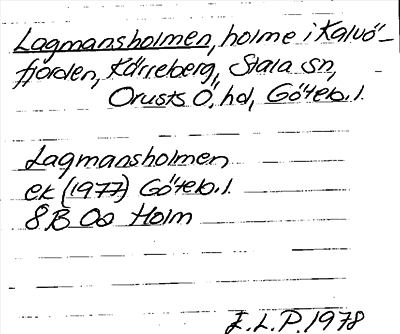 Lagmansholmen, holme i Kalvö-
fjorden, Kärreberg, Stala sn,
Orusts Ö. hd, Göteb. l.
Lagmansholmen
ek (1977) Göteb. l.
8B 0a Holm
E.L.P. 1978